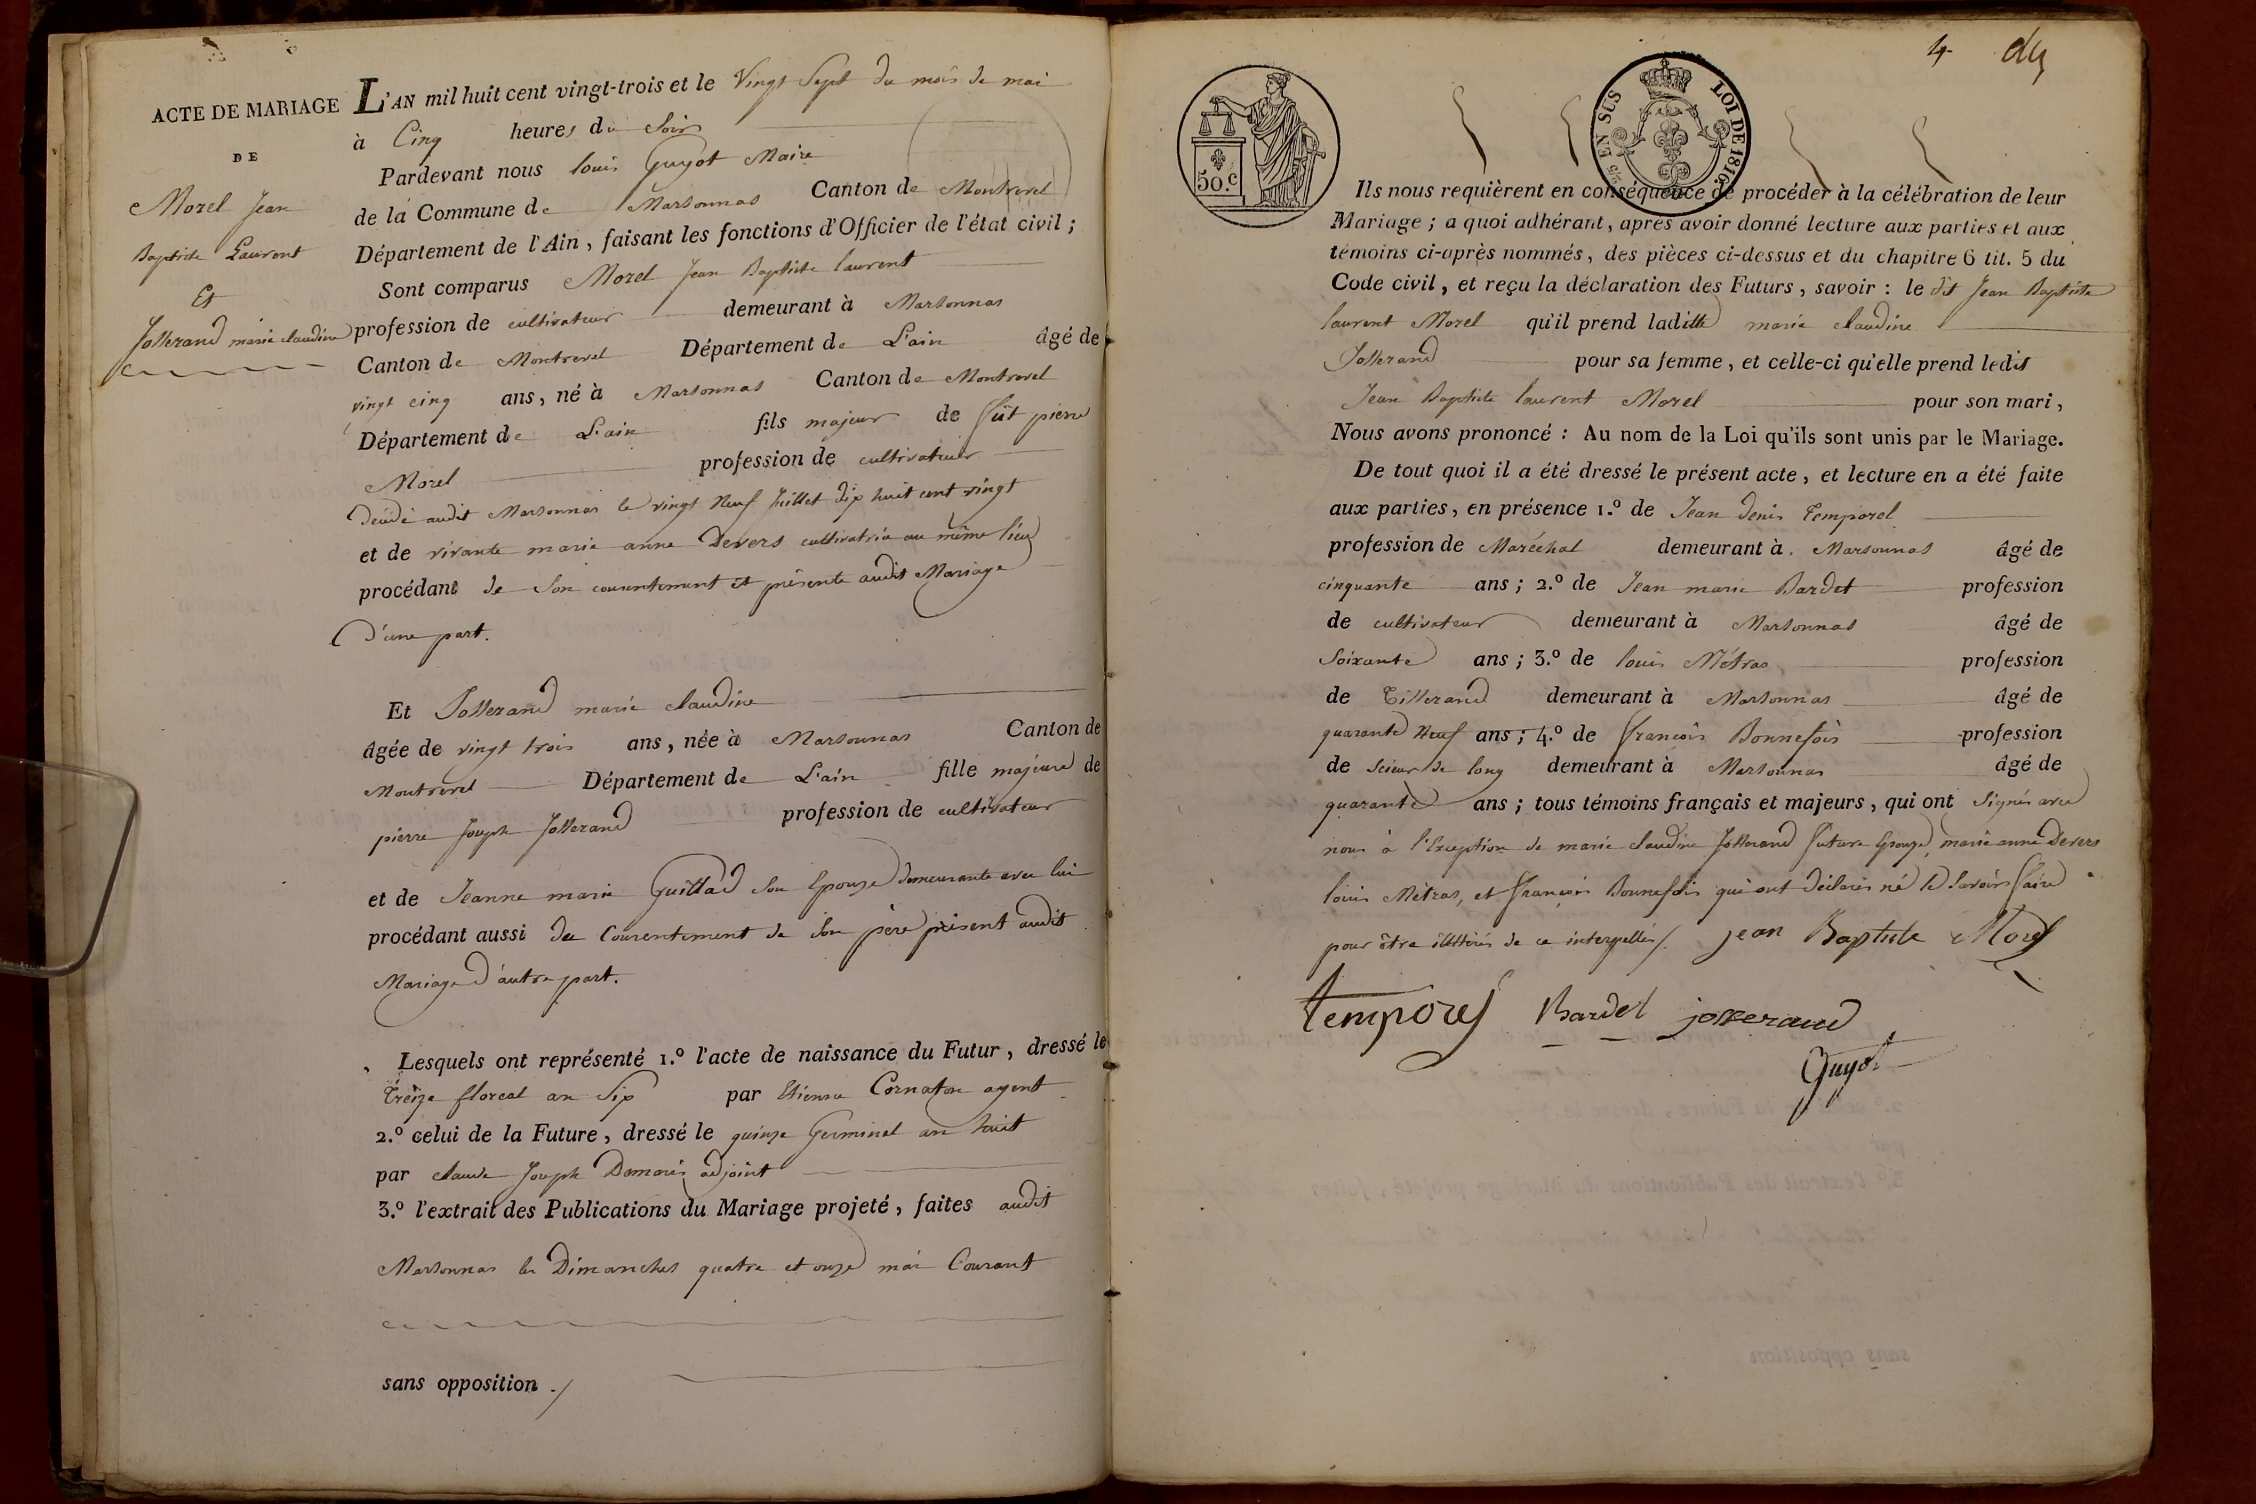 ACTE DE MARIAGE
DE
Morel Jean
Baptiste Laurent
Et
Josserand marie claudine
L'AN mil huit cent vingt-trois et le Vingt Sept du mois de mai
à Cinq heures du Soir
Pardevant nous louis Guyot Maire
de la Commune de Marsonnas Canton de Montrevel
Département de l'Ain, faisant les fonctions d'Officier de l'état civil ;
Sont comparus Morel Jean Baptiste laurent
profession de cultivateur demeurant à Marsonnas
Canton de Montrevel Département de L'ain âgé de
vingt cinq ans, né à Marsonnas Canton de Montrevel
Département de L'ain fils majeur de fût pierre
Morel profession de cultivateur
décédé audit Marsonnas le vingt Neuf Juillet dix huit cent vingt
et de vivante marie anne Devers cultivatrice au même lieu
procédant de Son consentement et présente audit Mariage
D'une part.
Et Josserand marie claudine
âgée de vingt trois ans, née à Marsonnas Canton de
Montrevel Département de L'ain fille majeure de
pierre Joseph Josserand profession de cultivateur
et de Jeanne marie Guillad Son Epouze demeurante avec lui
procédant aussi du Consentement de Son père présent audit
Mariage D'autre part.
Lesquels ont représenté 1.º l'acte de naissance du Futur, dressé le
Treize floreal an Six par Etienne Cornaton agent
2.º celui de la Future, dressé le quinze Germinal an huit
par claude Joseph Damais adjoint
3.º l'extrait des Publications du Mariage projeté, faites audit
Marsonnas les Dimanches quatre et onze mai Courant
sans opposition ./
4
50.c
EN SUS
LOI DE 1816.
Ils nous requièrent en conséquence de procéder à la célébration de leur
Mariage ; a quoi adhérant, après avoir donné lecture aux parties et aux
témoins ci-après nommés, des pièces ci-dessus et du chapitre 6 tit. 5 du
Code civil, et reçu la déclaration des Futurs, savoir : le dit Jean Baptiste
laurent Morel qu'il prend laditte marie claudine
Josserand pour sa femme, et celle-ci qu'elle prend ledit
Jean Baptiste laurent Morel pour son mari,
Nous avons prononcé : Au nom de la Loi qu'ils sont unis par le Mariage.
De tout quoi il a été dressé le présent acte, et lecture en a été faite
aux parties, en présence 1.º de Jean denis Temporel
profession de Maréchal demeurant à Marsonnas âgé de
cinquante ans ; 2.º de Jean marie Bardet profession
de cultivateur demeurant à Marsonnas âgé de
Soixante ans ; 3.º de louis Métras profession
de Tisserand demeurant à Marsonnas âgé de
quarante Neuf ans ; 4.º de françois Bonnefois profession
de Scieur de long demeurant à Marsonnas âgé de
quarante ans ; tous témoins français et majeurs, qui ont Signés avec
nous à l'Exception de marie claudine Josserand future Epouze, marie anne Devers
louis Métras, et françois Bonnefois qui ont déclarés né le Savoir faire
pour être illitérés de ce interpellés /. jean Baptiste Morel
temporel Bardet josserand
Guyot